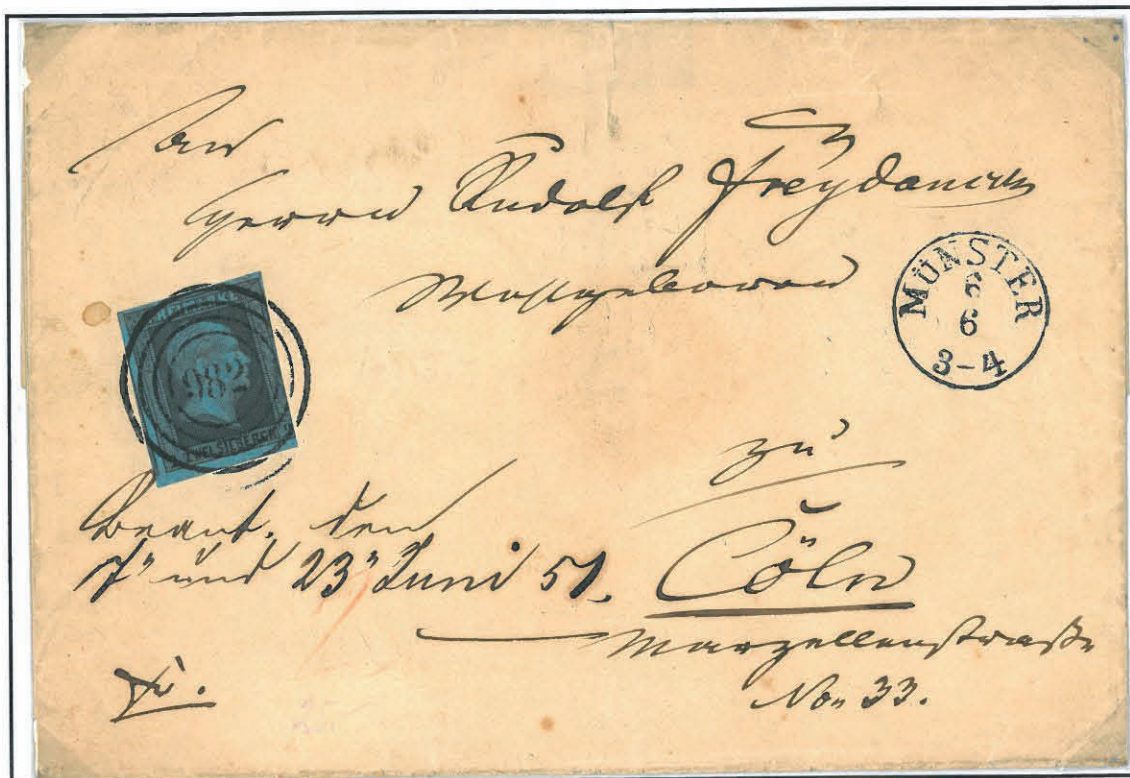 An
Herrn Rudolf Freydanck
Wohlgeboren
MÜNSTER
6
6
3-4
982
ZWEI SILBERGR
zu
Beant. den
7" und 23" Juni 51.
Cöln
Marzellenstraße
No. 33.
fr.